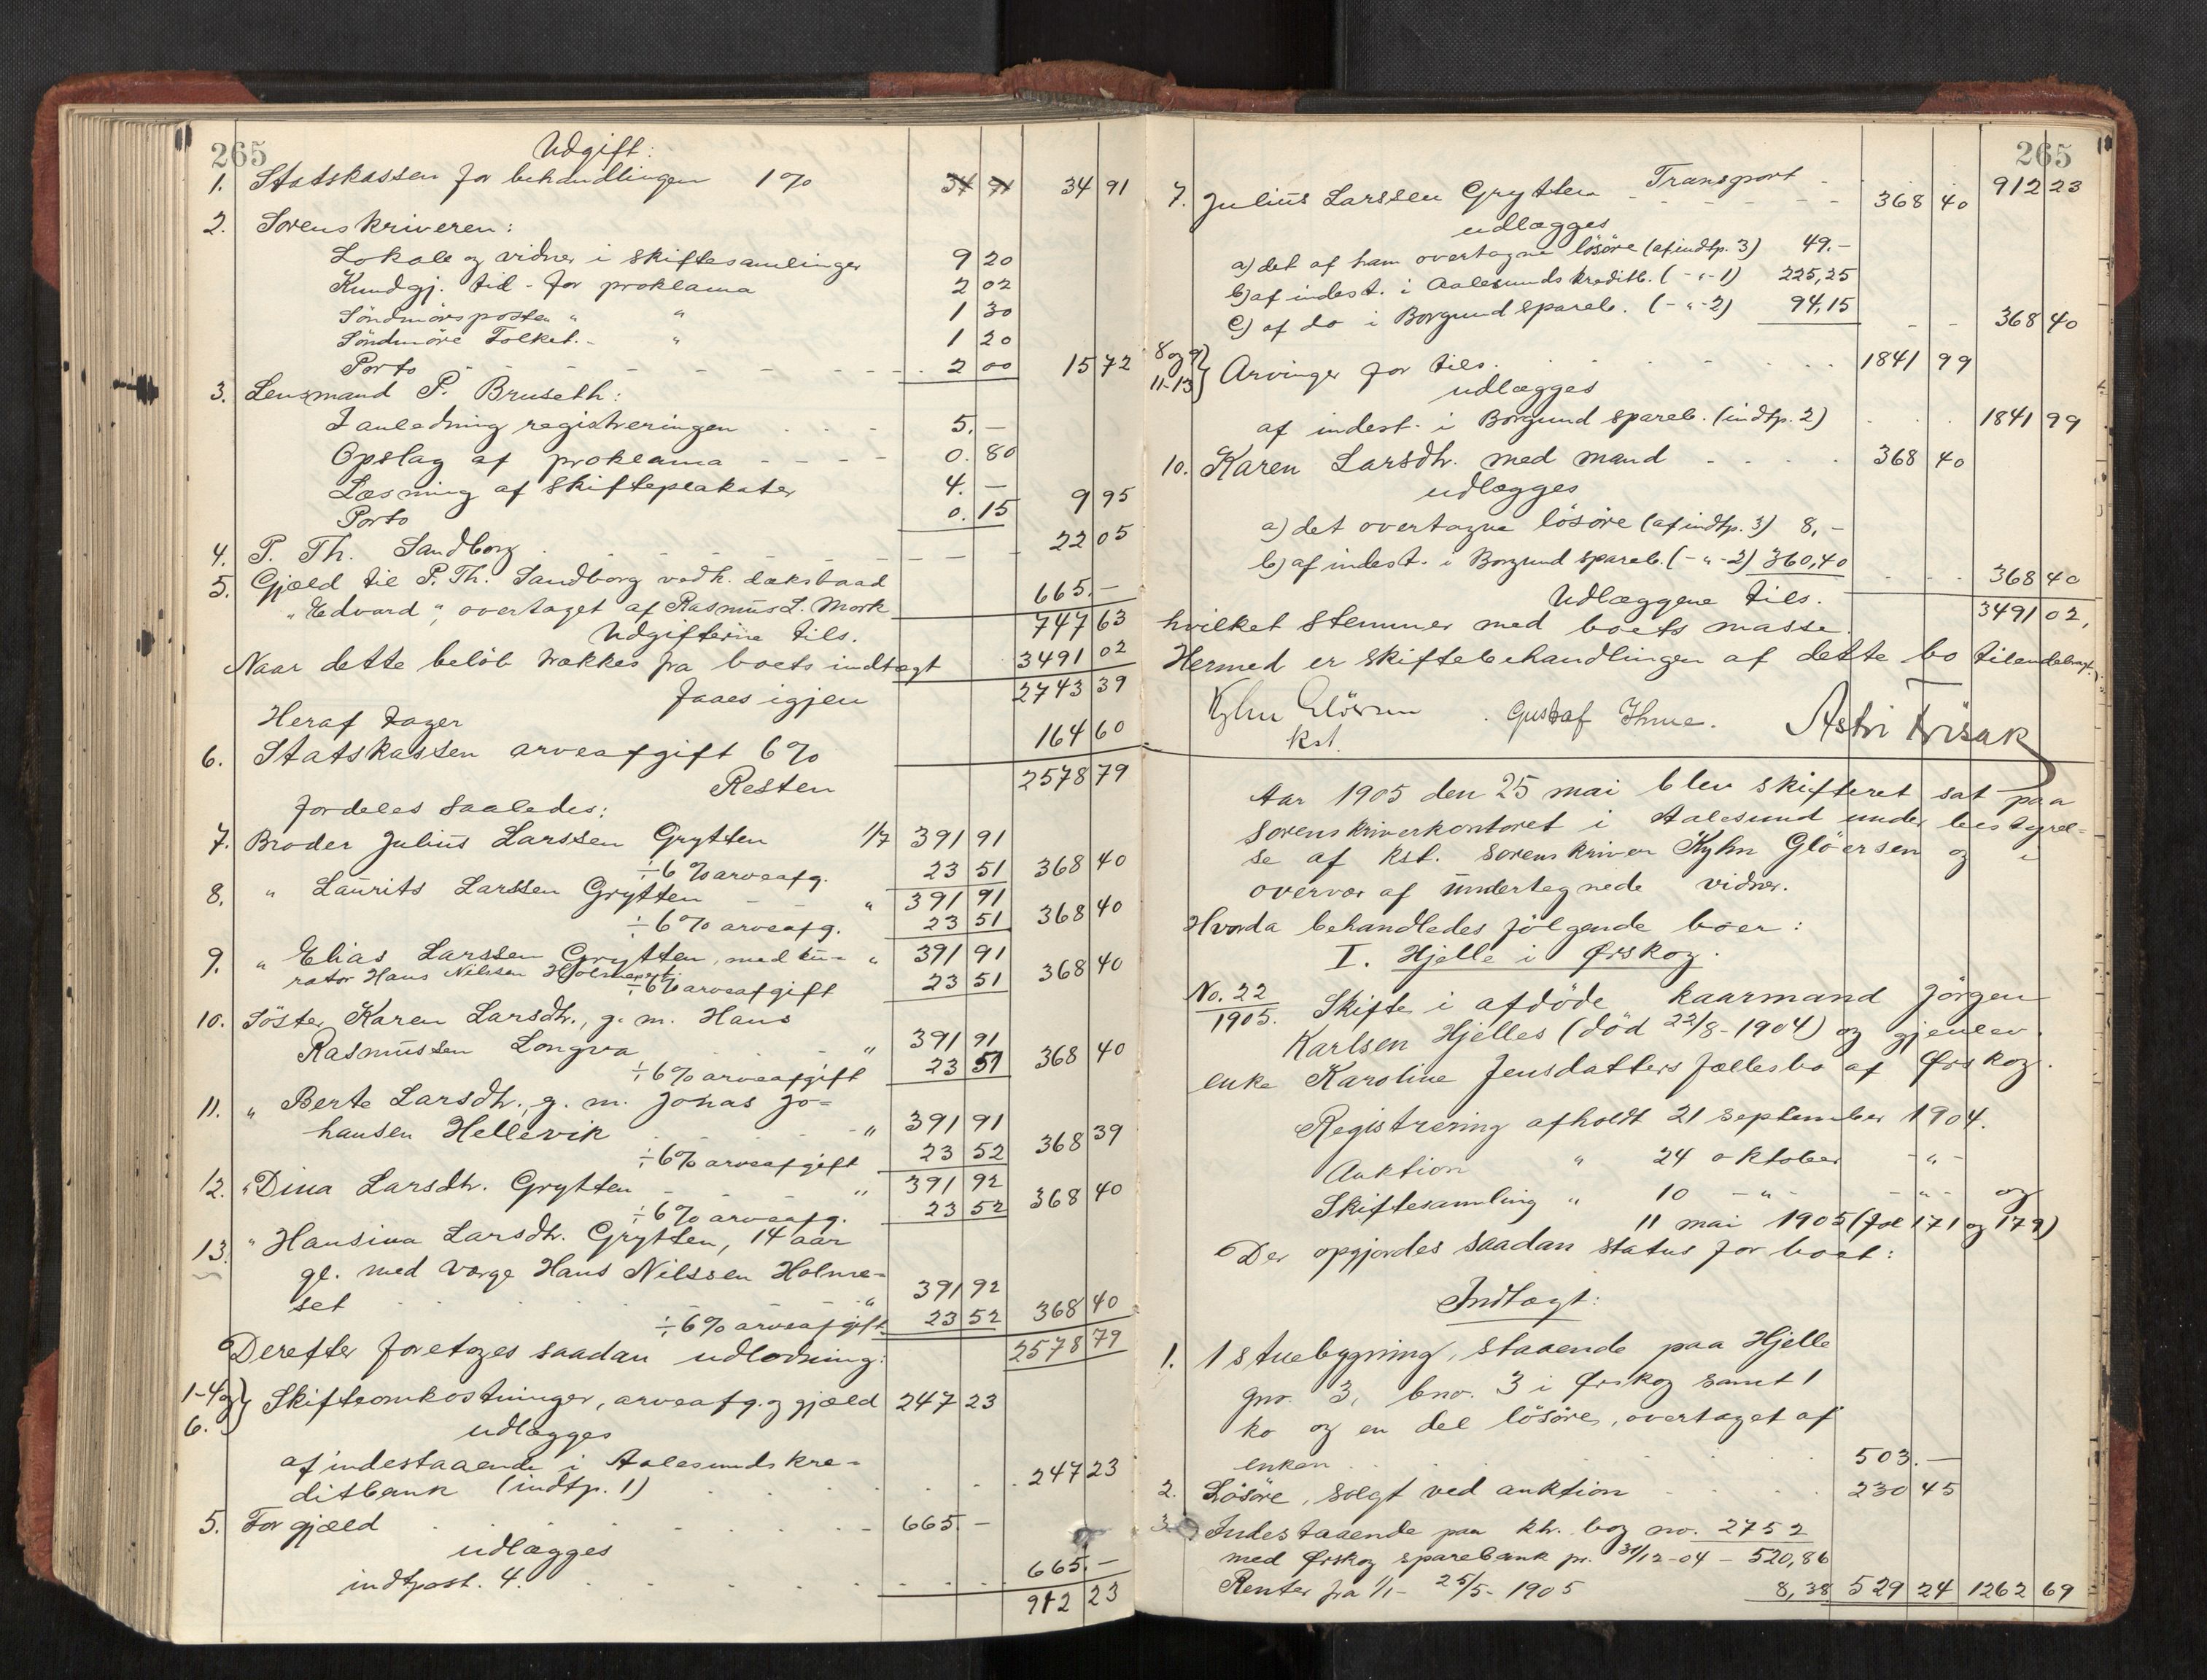 265
Udgift:
1. Statskassen for behandlingen 1% 34 91 34 91
2. Sorenskriveren:
Lokale og vidner i skiftesamlinger 9 20
Kundgj. tid - for proklama 2 02
Söndmörsposten " " 1 30
Söndmöre Folket. - " 1 20
Porto 2 00 15 72
3. Lensmand P. Bruseth:
I anledning registreringen 5. —
Opslag af proklama 0. 80
Læsning af skifteplakater 4. —
Porto 0. 15 9 95
4. P. Th. Sandborg 22 05
5. Gjæld til P. Th. Sandborg vedk. dæksbaad
"Edvard", overtaget af Rasmus L. Mork 665. —
Udgifterne tils. 747 63
Naar dette belöb trækkes fra boets indtægt 3491 02
faaes igjen 2743 39
Heraf tages
6. Statskassen arveafgift 6% 164 60
Resten 2578 79
fordeles saaledes:
7. Broder Julius Larssen Grytten 1/7 391 91
÷ 6% arveafg. 23 51 368 40
8. " Laurits Larssen Grytten " 391 91
÷ 6% arveafg. 23 51 368 40
9. " Elias Larssen Grytten, med ku- " 391 91
rator Hans Nilssen Holmeset
÷ 6% arveafgift 23 51 368 40
10. Söster Karen Larsdtr., g. m. Hans
Rasmussen Longva " 391 91
÷ 6% arveafgift 23 51 368 40
11. " Berte Larsdtr., g. m. Jonas Jo=
hansen Hellevik " 391 91
÷ 6% arveafgift 23 52 368 39
12. " Dina Larsdtr. Grytten " 391 92
÷ 6% arveafg. 23 52 368 40
13. " Hansina Larsdtr. Grytten, 14 aar
gl. med værge Hans Nilssen Holme=
set " 391 92
÷ 6% arveafgift 23 52 368 40
2578 79
Derefter foretages saadan udlodning:
1-4 og 6. } Skifteomkostninger, arveafg. og gjæld 247 23
udlægges
af indestaaende i Aalesunds kre=
ditbank (indtp. 1) 247 23
5. For gjæld 665. —
udlægges
indtpost. 4. 665. —
912 23
265
Transport 912 23
7. Julius Larssen Grytten 368 40
udlægges
a) det af ham overtagne lösöre (af indtp. 3) 49. —
b) af indest. i Aalesunds kreditb. ( - " - 1) 225,25
c) af do i Borgund spareb. ( - " - 2) 94,15 368 40
8 og 9 11-13 } Arvinger for tils. 1841 99
udlægges
af indest. i Borgund spareb. (indtp. 2) 1841 99
10. Karen Larsdtr. med mand 368 40
udlægges
a) det overtagne lösöre (af indtp. 3) 8, —
b) af indest. i Borgund spareb. ( - " - 2) 360,40 368 40
Udlæggene tils. 3491 02,
hvilket stemmer med boets masse.
Hermed er skiftebehandlingen af dette bo tilendebragt.
Kyhn Glöersen
kst.
Gustaf
Astri
Aar 1905 den 25 mai blev skifteret sat paa
sorenskriverkontoret i Aalesund under bestyrel=
se af kst. sorenskriver Kyhn Glöersen og i
overvær af undertegnede vidner.
Hvorda behandledes följgende boer:
I. Hjelle i Ørskog.
No. 22
1905. Skifte i afdöde kaarmand Jörgen
Karlsen Hjelles (död 22/8 - 1904) og gjenlev.
enke Karoline Jensdatters fællesbo af Ørskog.
Registrering afholdt 21 september 1904.
Auktion " 24 oktober - " -
Skiftesamling " 10 - " - - " - og
11 mai 1905 (fol 171 og 179)
Der opgjordes saadan status for boet:
Indtægt:
1. 1 stuebygning, staaende paa Hjelle
gno. 3, bno. 3 i Ørskog samt 1
ko og en del lösöre, overtaget af
enken 503. —
2. Lösöre, solgt ved auktion 230 45
3. Indestaaende paa ktr. bog no. 2752
med Ørskog sparebank pr. 31/12-04 - 520,86
Renter fra 1/1 - 25/5 - 1905 8,38 529 24 1262 69